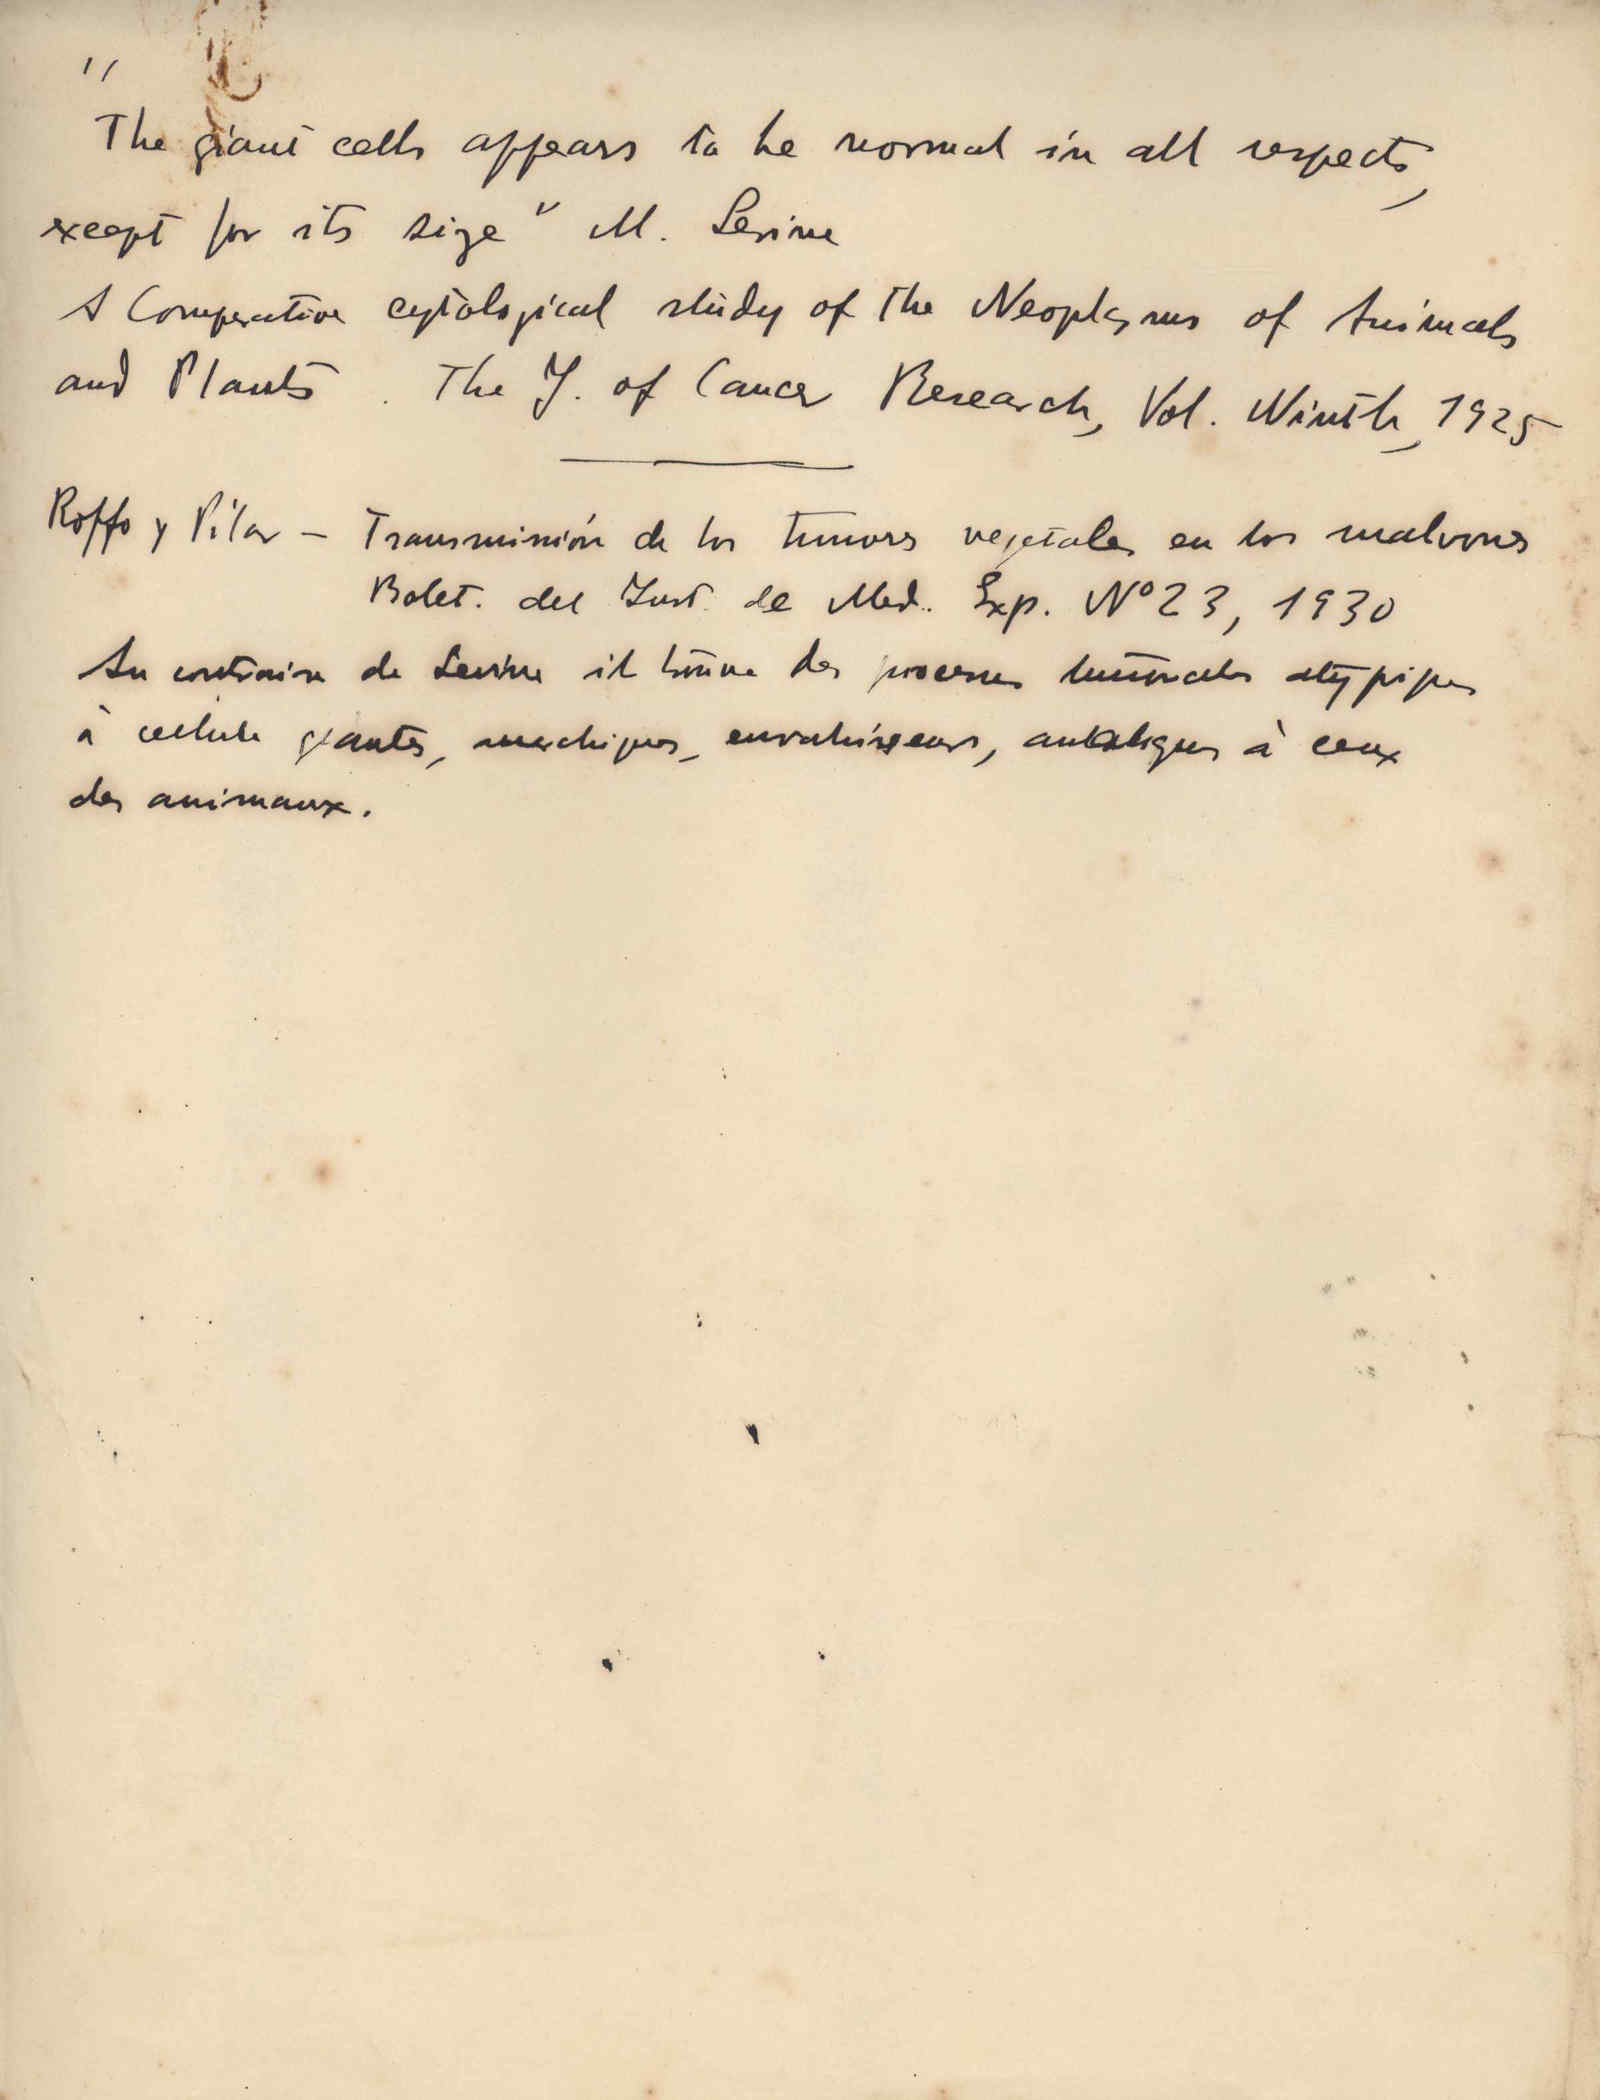 "
The giant cells appears to be normal in all respects,
except for its size" M. Levine
A Comperative cytological study of the Neoplasms of Animals
and Plants. The J. of Cancer Research, Vol. Ninth, 1925
Roffo y Pilar – Transmisión de los tumores vegetales en los malvones
Bolet. del Inst. de Med. Exp. Nº 23, 1930
Au contraire de Levine il trouve des processus tumorales atypiques
à cellule géantes, anarchiques, envahisseurs, analogues à ceux
des animaux.